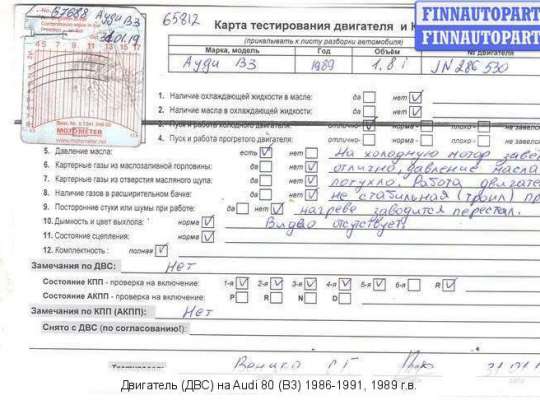 65812
Б7688
Ауди В3
31.01.19
Карта тестирования двигателя и К
FINNAUTOPART
FINNAUTOPART
(прикалывать к листу разборки автомобиля)
Марка, модель Год Объём № двигателя
Ауди В3 1989 1,8i JN 286 530
MOTOMETER
1. Наличие охлаждающей жидкости в масле: да нет
2. Наличие масла в охлаждающей жидкости: да нет
3. Пуск и работа холодного двигателя: отлично норма плохо не завел
4. Пуск и работа прогретого двигателя: отлично норма плохо не завел
5. Давление масла: есть нет На холодную мотор заве
6. Картерные газы из маслозаливной горловины: да нет отлично, давление масла
7. Картерные газы из отверстия масляного щупа: да нет потухло. Работа двигате
8. Наличие газов в расширительном бачке: да нет не стабильная (троил) пр
9. Посторонние стуки или шумы при работе: да нет нагреве заводится перестал.
10. Дымность и цвет выхлопа: норма Видео отсутствует.
11. Состояние сцепления: норма
12. Комплектность : полная
Замечания по ДВС: Нет
Состояние КПП - проверка на включение: 1-я 2-я 3-я 4-я 5-я 6-я R
Состояние АКПП - проверка на включение: P R N D
Замечания по КПП (АКПП): Нет
Снято с ДВС (по согласованию!):
31.01.1
Двигатель (ДВС) на Audi 80 (B3) 1986-1991, 1989 г.в.